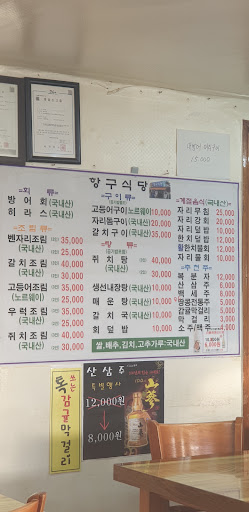 항구식당
회 류
방어회(국내산)
히라스(국내산)
조림류
벤자리조림 35,000
(국내산) 30,000
갈치조림 35,000
(국내산) 25,000
고등어조림 35,000
(노르웨이) 25,000
우럭조림 35,000
(국내산) 25,000
쥐치조림 40,000
(국내산) 30,000
구이류
고등어구이(노르웨이) 10,000
자리돔구이(국내산) 20,000
갈치구이(국내산) 35,000
탕 류
쥐치탕 40,000
(국내산) 30,000
생선내장탕(국내산) 10,000
매운탕(국내산)
갈치국(국내산) 10,000
회덮밥 10,000
쌀,배추,김치,고추가루:국내산
계절음식(국내산)
자리무침 25,000
자리강회 20,000
자리덮밥 10,000
한치덮밥 12,000
황한치물회
자리물회 10,000
주 전 주
복분자 12,000
산삼주
백세주
땅콩전통주
감귤막걸리
막걸리 3,000
소주/맥주
15,000
톡 쏘는
감귤막걸리
산삼주
특별행사
12,000원
8,000원